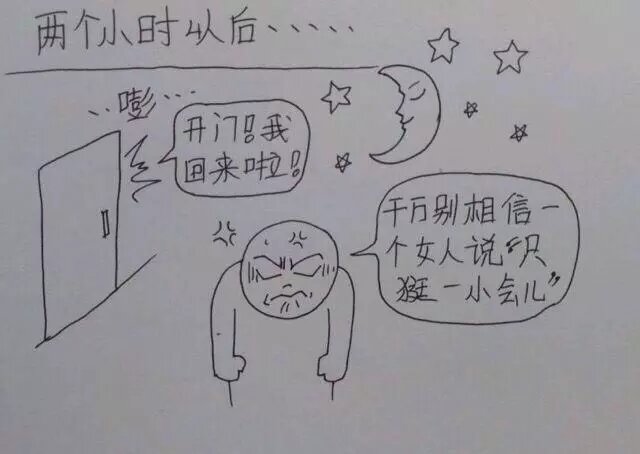 两个小时以后、、、、、
、、嘭、、、
开门！我
回来啦！
千万别相信一
个女人说“只
逛一小会儿”